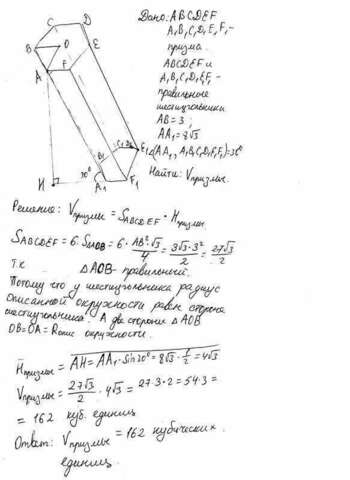 Дано: ABCDEF
A₁B₁C₁D₁E₁F₁ -
призма.
ABCDEF и
A₁B₁C₁D₁E₁F₁ -
правильные
шестиугольники
AB = 3 ;
AA₁ = 8√3
∠(AA₁, A₁B₁C₁D₁E₁F₁) = 30°
Найти: Vпризмы.
C D
B O E
A F
B₁ C₁ D₁ E₁
H 30° A₁ F₁
Решение: Vпризмы = SABCDEF · Hпризмы
SABCDEF = 6 · SΔAOB = 6 · AB²·√3/4 = 3√3·3²/2 = 27√3/2
Т.к. ΔAOB - правильный.
Потому что у шестиугольника радиус
описанной окружности равен стороне
шестиугольника. А две стороны ΔAOB
OB = OA = Rопис окружности.
Hпризмы = AH = AA₁ · sin30° = 8√3 · 1/2 = 4√3
Vпризмы = 27√3/2 · 4√3 = 27·3·2 = 54·3 =
= 162 куб. единиц
Ответ: Vпризмы = 162 кубических
единиц.